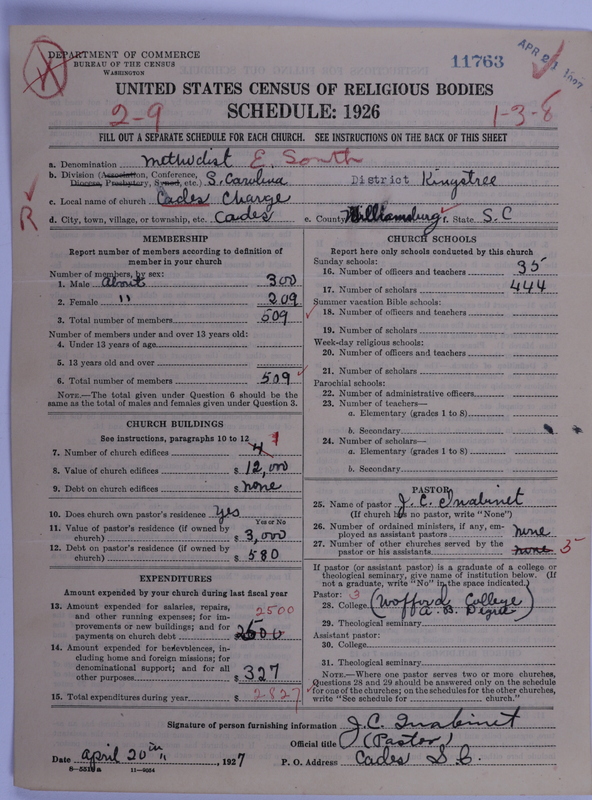 DEPARTMENT OF COMMERCE
BUREAU OF THE CENSUS
WASHINGTON
11763
APR 2
UNITED STATES CENSUS OF RELIGIOUS BODIES
2-9
SCHEDULE: 1926
1-3-8
FILL OUT A SEPARATE SCHEDULE FOR EACH CHURCH. SEE INSTRUCTIONS ON THE BACK OF THIS SHEET
a. Denomination Methodist E. South
b. Division (Association, Conference, Diocese, Presbytery, Synod, etc.) S. Carolina District Kingstree
R
c. Local name of church Cades Charge
d. City, town, village, or township, etc. Cades e. County Williamsburg f. State S.C
MEMBERSHIP
Report number of members according to definition of
member in your church
Number of members, by sex:
1. Male About 300
2. Female " 209
3. Total number of members 509
Number of members under and over 13 years old:
4. Under 13 years of age
5. 13 years old and over
6. Total number of members 509
NOTE.—The total given under Question 6 should be the
same as the total of males and females given under Question 3.
CHURCH BUILDINGS
See instructions, paragraphs 10 to 12
7. Number of church edifices 4
8. Value of church edifices $ 12,000
9. Debt on church edifices $ none
10. Does church own pastor's residence Yes
Yes or No
11. Value of pastor's residence (if owned by
church) $ 3,000
12. Debt on pastor's residence (if owned by
church) $ 580
EXPENDITURES
Amount expended by your church during last fiscal year
13. Amount expended for salaries, repairs,
and other running expenses; for im-
provements or new buildings; and for
payments on church debt 2500 $ 2500
14. Amount expended for benevolences, in-
cluding home and foreign missions; for
denominational support; and for all
other purposes $ 327
15. Total expenditures during year $ 2827
CHURCH SCHOOLS
Report here only schools conducted by this church
Sunday schools:
16. Number of officers and teachers 35
17. Number of scholars 444
Summer vacation Bible schools:
18. Number of officers and teachers
19. Number of scholars
Week-day religious schools:
20. Number of officers and teachers
21. Number of scholars
Parochial schools:
22. Number of administrative officers
23. Number of teachers—
a. Elementary (grades 1 to 8)
b. Secondary
24. Number of scholars—
a. Elementary (grades 1 to 8)
b. Secondary
PASTOR
25. Name of pastor J. C. Inabinet
(If church has no pastor, write "None")
26. Number of ordained ministers, if any, em-
ployed as assistant pastors none
27. Number of other churches served by the
pastor or his assistants none 3
If pastor (or assistant pastor) is a graduate of a college or
theological seminary, give name of institution below. (If
not a graduate, write "No" in the space indicated.)
Pastor: 3
28. College (Wofford College
A. B. Degree)
29. Theological seminary
Assistant pastor:
30. College
31. Theological seminary
NOTE.—Where one pastor serves two or more churches,
Questions 28 and 29 should be answered only on the schedule
for one of the churches; on the schedules for the other churches,
write "See schedule for church."
Signature of person furnishing information J. C. Inabinet
Official title (Pastor)
Date April 20th, 1927 P. O. Address Cades S. C.
8—5519a 11—9054